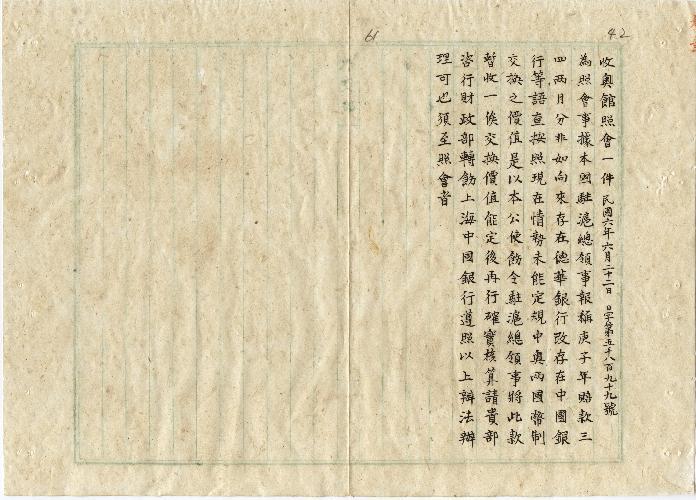 42
61
收奧館照會一件 民國六年六月二十二日 日字第五千八百九十九號
為照會事據本國駐滬總領事報稱庚子年賠款三
四兩月分非如向來存在德華銀行改存在中國銀
行等語查按照現在情勢未能定規中奧兩國幣制
交換之價值是以本公使飭令駐滬總領事將此款
暫收一俟交換價值能定後再行確實核算請貴部
咨行財政部轉飭上海中國銀行遵照以上辦法辦
理可也須至照會者